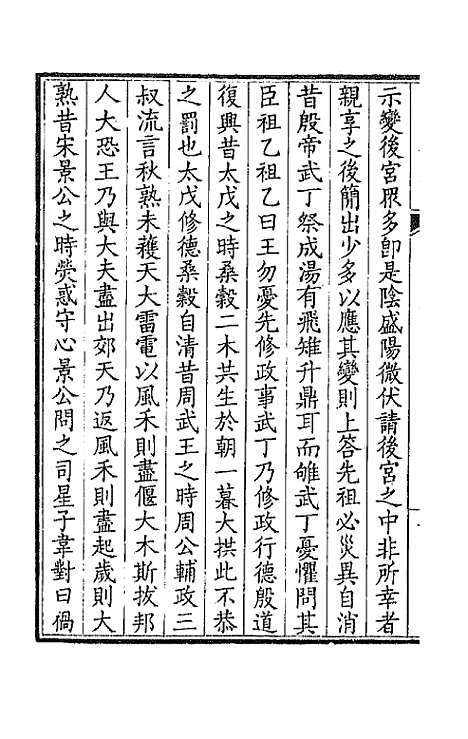 示變後宮眾多即是陰盛陽微伏請後宮之中非所幸者
親享之後簡出少多以應其變則上答先祖必災異自消
昔殷帝武丁祭成湯有飛雉升鼎耳而雊武丁憂懼問其
臣祖乙祖乙曰王勿憂先修政事武丁乃修政行德殷道
復興昔太戊之時桑穀二木共生於朝一暮大拱此不恭
之罰也太戊修德桑穀自清昔周武王之時周公輔政三
叔流言秋熟未穫天大雷電以風禾則盡偃大木斯拔邦
人大恐王乃與大夫盡出郊天乃返風禾則盡起歲則大
熟昔宋景公之時熒惑守心景公問之司星子韋對曰禍